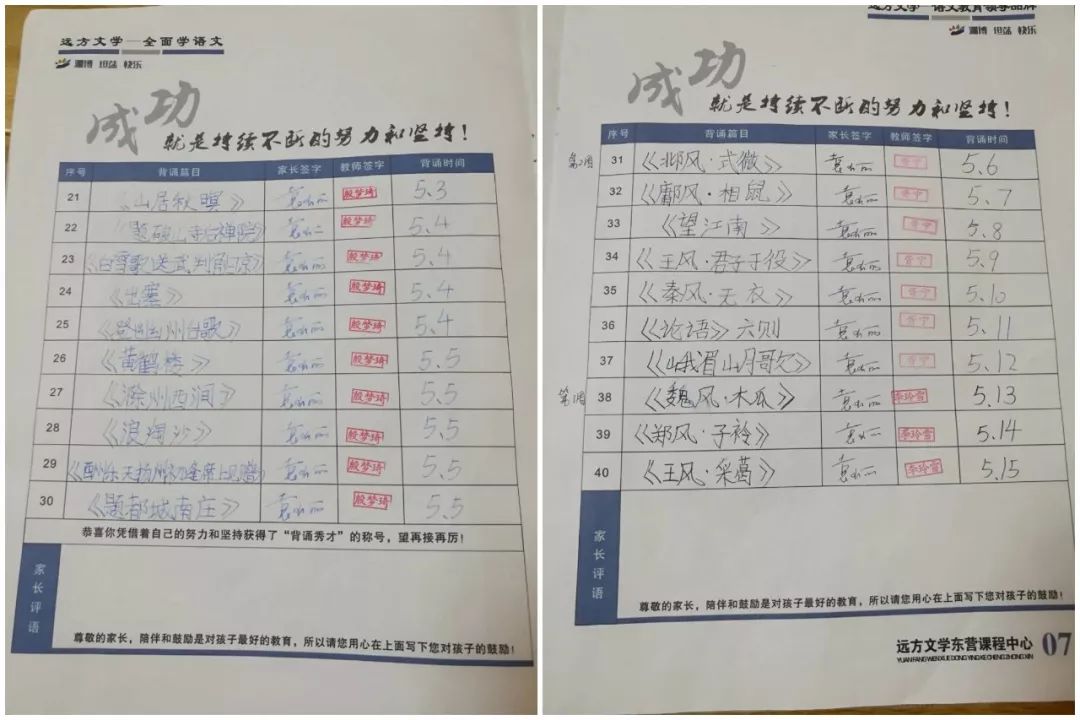 远方文学—全面学语文
渊博 坦荡 快乐
成功
就是持续不断的努力和坚持！
序号 背诵篇目 家长签字 教师签字 背诵时间
21 《山居秋暝》 殷梦琦 5.3
22 《题破山寺后禅院》 殷梦琦 5.4
23 《白雪歌送武判官归京》 殷梦琦 5.4
24 《出塞》 殷梦琦 5.4
25 《登幽州台歌》 殷梦琦 5.4
26 《黄鹤楼》 殷梦琦 5.5
27 《滁州西涧》 殷梦琦 5.5
28 《浪淘沙》 殷梦琦 5.5
29 《酬乐天扬州初逢席上见赠》 殷梦琦 5.5
30 《题都城南庄》 殷梦琦 5.5
恭喜你凭借着自己的努力和坚持获得了“背诵秀才”的称号，望再接再厉！
家长评语
尊敬的家长，陪伴和鼓励是对孩子最好的教育，所以请您用心在上面写下您对孩子的鼓励！
远方文学—语文教育领导品牌
渊博 坦荡 快乐
成功
就是持续不断的努力和坚持！
序号 背诵篇目 家长签字 教师签字 背诵时间
31 《邶风·式微》 5.6
32 《鄘风·相鼠》 5.7
33 《望江南》 5.8
34 《王风·君子于役》 5.9
35 《秦风·无衣》 5.10
36 《论语》六则 5.11
37 《峨眉山月歌》 5.12
38 《魏风·木瓜》 李玲雪 5.13
39 《郑风·子衿》 李玲雪 5.14
40 《王风·采葛》 李玲雪 5.15
家长评语
尊敬的家长，陪伴和鼓励是对孩子最好的教育，所以请您用心在上面写下您对孩子的鼓励！
远方文学东营课程中心 07
YUAN FANG WEN XUE DONG YING KE CHENG ZHONG XIN